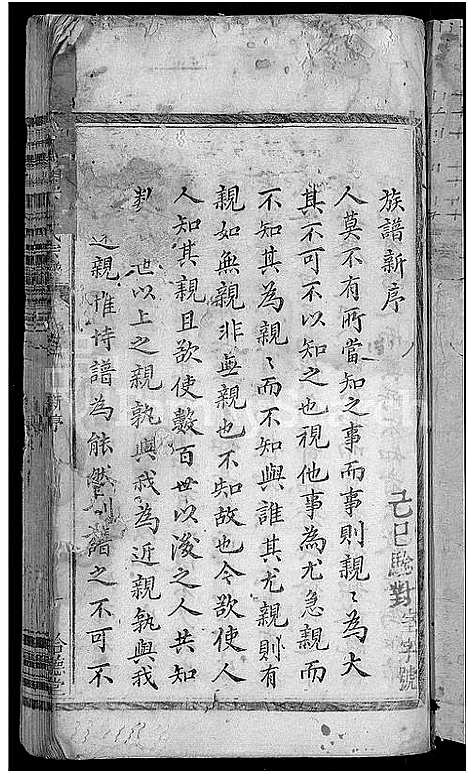 族譜新序
人莫不有所當知之事而事則親〻為大
其不可不以知之也視他事為尤急親而
不知其為親〻而不知與誰其尤親則有
親如無親非無親也不知故也今欲使人
人知其親且欲使數百世以後之人共知
世以上之親孰與我為近親孰與我
近親惟恃譜為能然則譜之不可不
己巳驗對 字號
新序